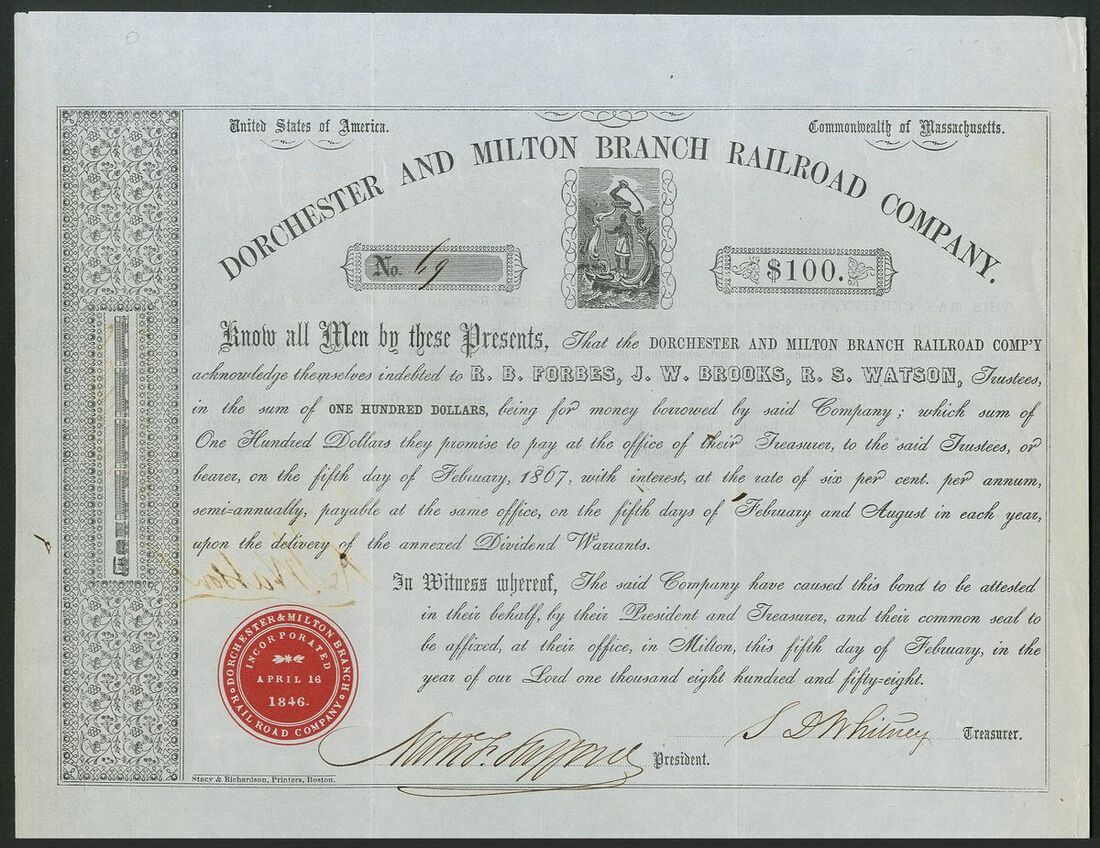 United States of America.
Commonwealth of Massachusetts.
DORCHESTER AND MILTON BRANCH RAILROAD COMPANY.
No. 69
$100.
Know all Men by these Presents, That the DORCHESTER AND MILTON BRANCH RAILROAD COMP'Y
acknowledge themselves indebted to R. B. FORBES, J. W. BROOKS, R. S. WATSON, Trustees,
in the sum of ONE HUNDRED DOLLARS, being for money borrowed by said Company; which sum of
One Hundred Dollars they promise to pay at the office of their Treasurer, to the said Trustees, or
bearer, on the fifth day of February, 1867, with interest, at the rate of six per cent. per annum,
semi-annually, payable at the same office, on the fifth days of February and August in each year,
upon the delivery of the annexed Dividend Warrants.
In Witness whereof, The said Company have caused this bond to be attested
in their behalf, by their President and Treasurer, and their common seal to
be affixed, at their office, in Milton, this fifth day of February, in the
year of our Lord one thousand eight hundred and fifty-eight.
DORCHESTER & MILTON BRANCH
RAIL ROAD COMPANY
INCORPORATED
APRIL 16
1846.
S D Whitney Treasurer.
President.
Stacy & Richardson, Printers, Boston.